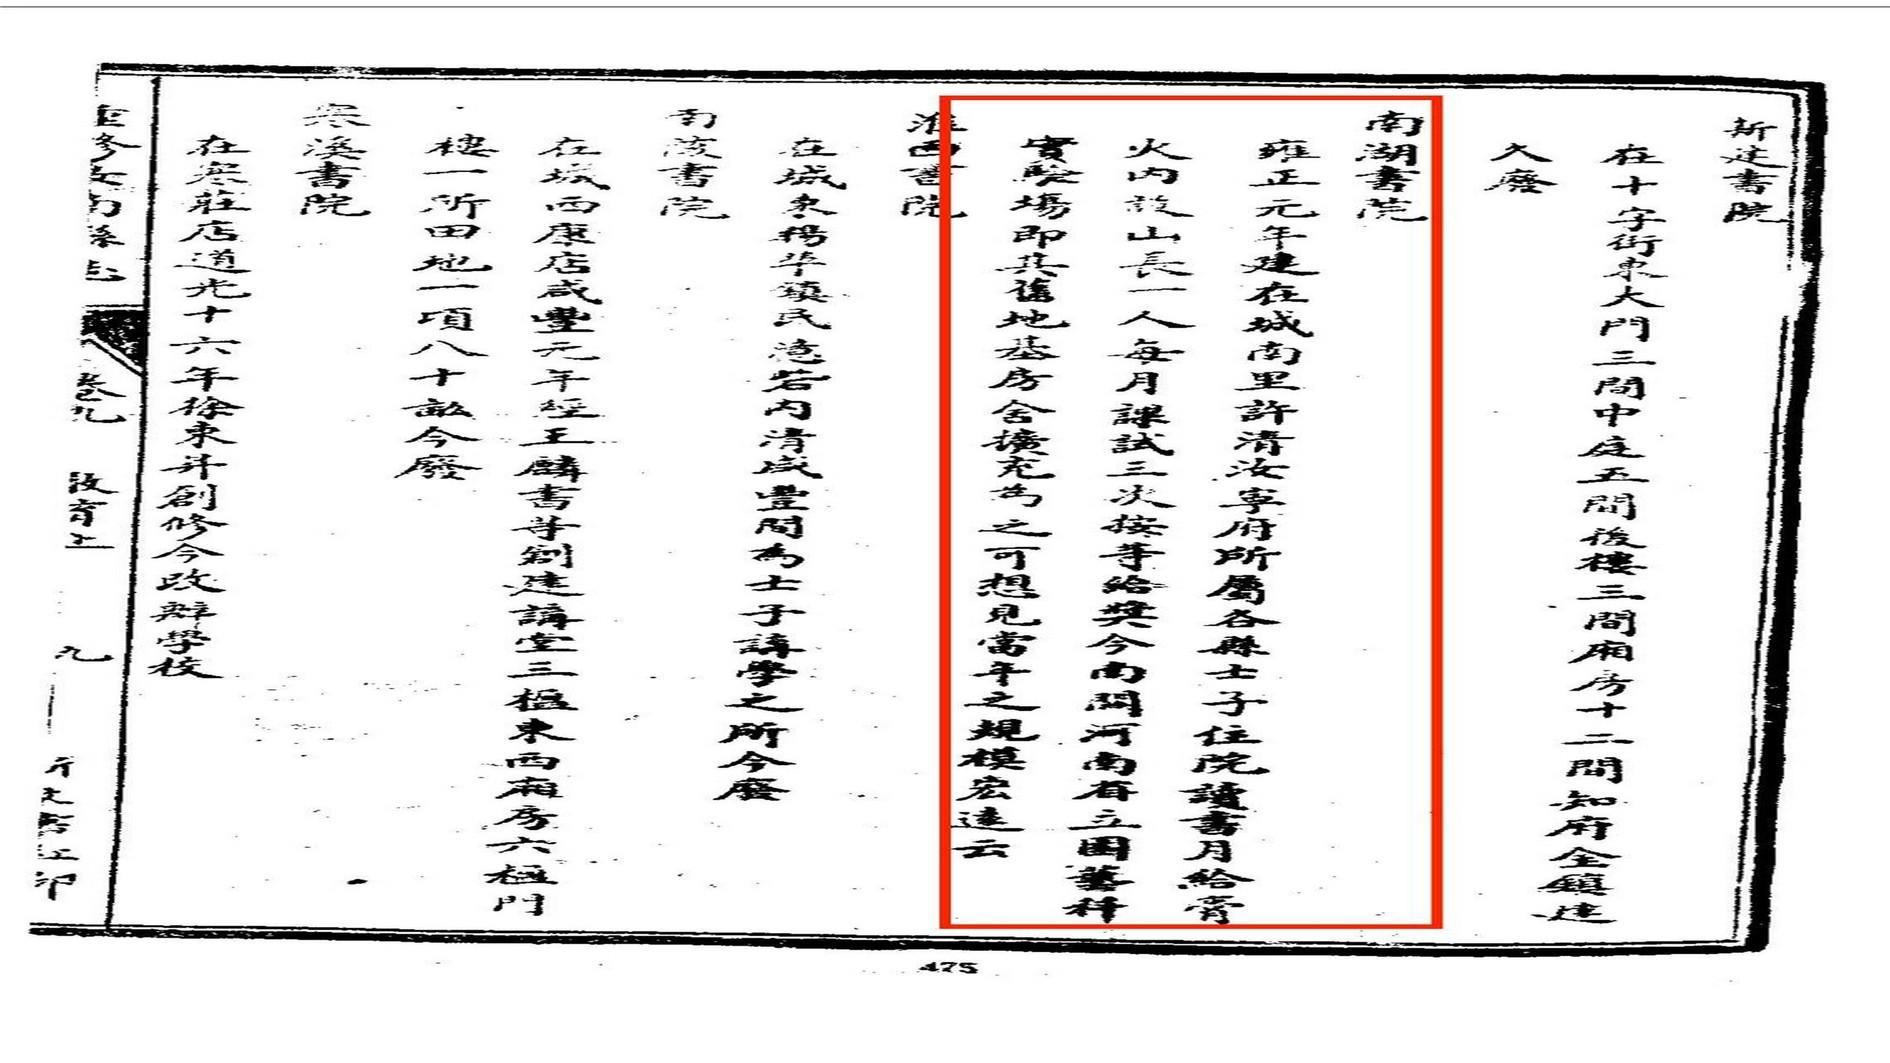 新建書院
在十字街東大門三間中庭五間後樓三間廂房十二間知府金鎮建
久廢
南湖書院
雍正元年建在城南里許清汝寧府所屬各縣士子住院讀書月給膏
火內設山長一人每月課試三次按等給獎今南關河南省立園藝科
實驗場即其舊地基房舍擴充為之可想見當年之規模宏遠云
淮西書院
在城東楊華鎮民 若內清咸豐間為士子講學之所今廢
南 書院
在城西康店咸豐元年經王麟書等創建講堂三楹東西廂房六楹門
樓一所田地一頃八十畝今廢
寒溪書院
在寒莊店道光十六年徐東升創修今改辦學校
重修汝南縣志
卷九
教育上
九
475